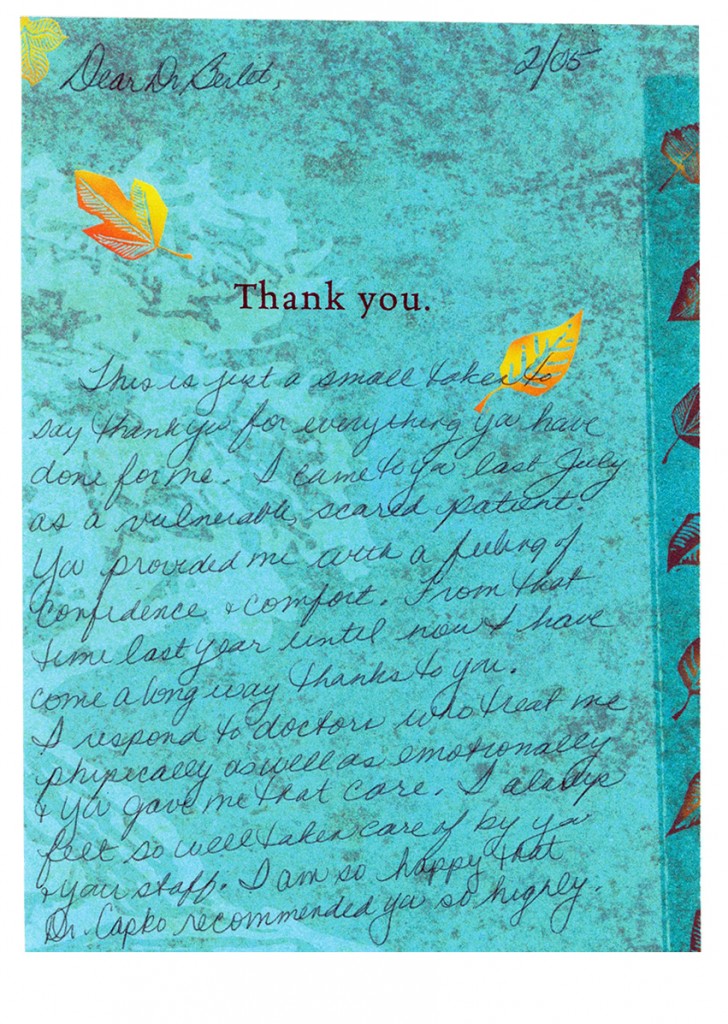 Dear Dr Berlet,
2/05
Thank you.
This is just a small token to
say thank you for everything you have
done for me. I came to you last July
as a vulnerable, scared patient.
You provided me with a feeling of
confidence + comfort. From that
time last year until now I have
come a long way thanks to you.
I respond to doctors who treat me
physically as well as emotionally
+ you gave me that care. I always
felt so well taken care of by you
+ your staff. I am so happy that
Dr. Capko recommended you so highly.